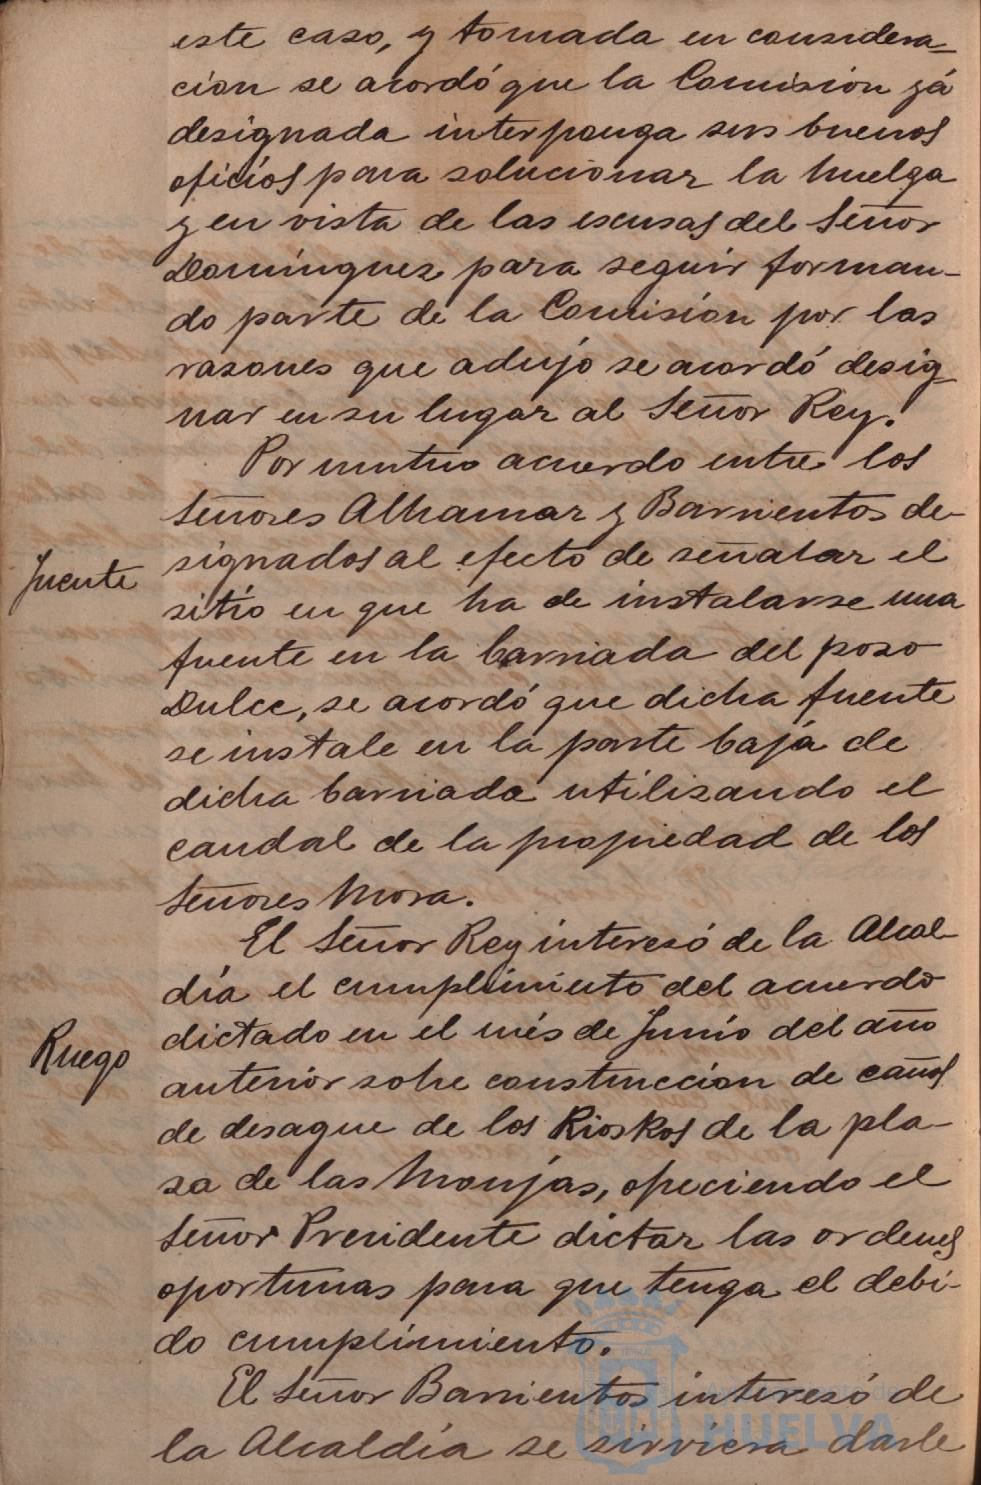 este caso, y tomada en considera-
cion se acordó que la Comision yá
designada interponga sus buenos
oficios para solucionar la huelga
y en vista de las escusas del Señor
Domínguez para seguir forman-
do parte de la Comisión por las
razones que adujo se acordó desig-
nar en su lugar al Señor Rey.
Por mutuo acuerdo entre los
Señores Alhamar y Barrientos de-
signados al efecto de señalar el
Fuente
sitio en que ha de instalarse una
fuente en la barriada del poso
Dulce, se acordó que dicha fuente
se instale en la parte baja de
dicha barriada utilizando el
caudal de la propiedad de los
Señores Mora.
El Señor Rey interesó de la Alcal-
día el cumplimiento del acuerdo
dictado en el més de Junio del año
Ruego
anterior sobre construccion de caños
de desague de los Kioskos de la pla-
za de las Monjas, ofreciendo el
Señor Presidente dictar las ordenes
oportunas para que tenga el debi-
do cumplimiento.
El Señor Barrientos interesó de
la Alcaldía se sirviera darle
HUELVA